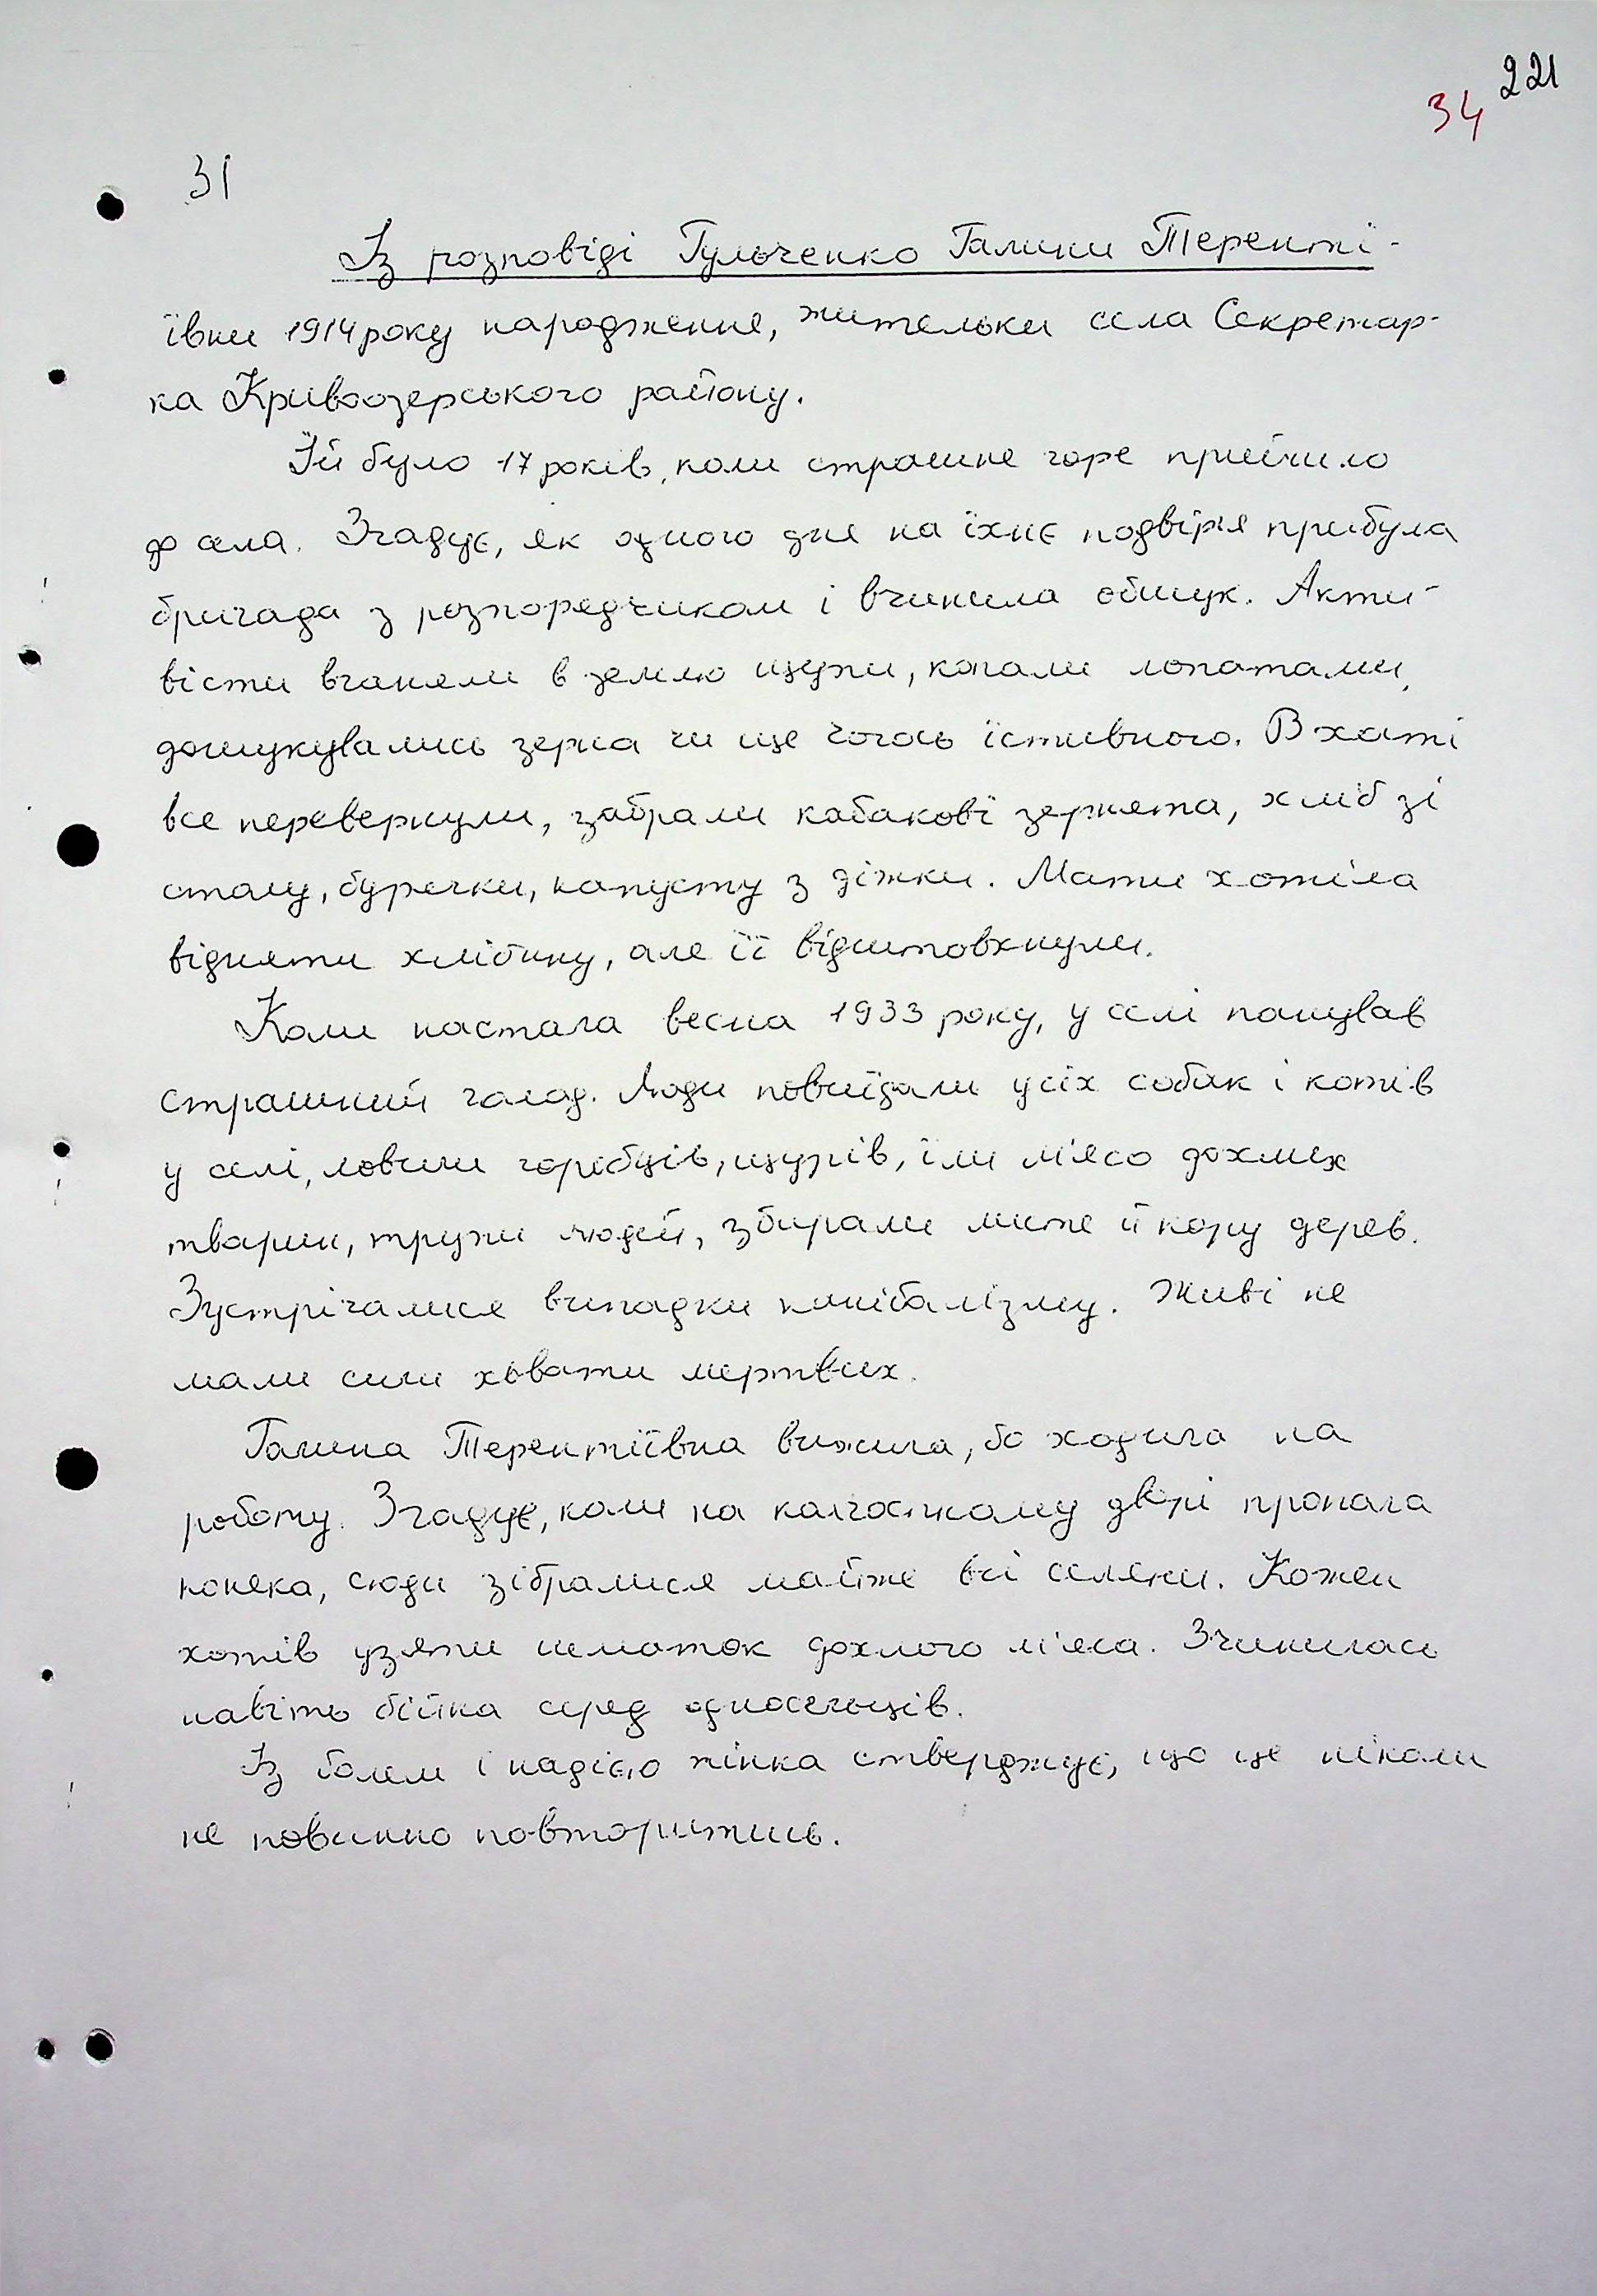 221
34
31
Із розповіді Гульченко Галини Терентi-
ївни 1914 року народження, жительки села Секретар-
ка Кривоозерського району.
Їй було 17 років, коли страшне горе прийшло
до села. Згадує, як одного дня на їхнє подвір'я прибула
бригада з розпорядчиком і вчинила обшук. Акти-
вісти вганяли в землю щупи, копали лопатами,
дошукувались зерна чи ще чогось їстивного. В хаті
все перевернули, забрали кабакові зернята, хліб зі
столу, бурячки, капусту з діжки. Мати хотіла
відняти хлібину, але її відштовхнули.
Коли настала весна 1933 року, у селі панував
страшний голод. Люди повиїдали усіх собак і котів
у селі, ловили горобців, щурів, їли м'ясо дохлих
тварин, трупи людей, збирали листя й кору дерев.
Зустрічалися випадки канібалізму. Живі не
мали сили ховати мертвих.
Галина Терентіївна вижила, бо ходила на
роботу. Згадує, коли на колгоспному дворі пропала
коняка, сюди зібралися майже всі селяни. Кожен
хотів узяти шматок дохлого м'яса. Зчинилась
навіть бійка серед односельців.
Із болем і надією жінка стверджує, що це ніколи
не повинно повторитись.